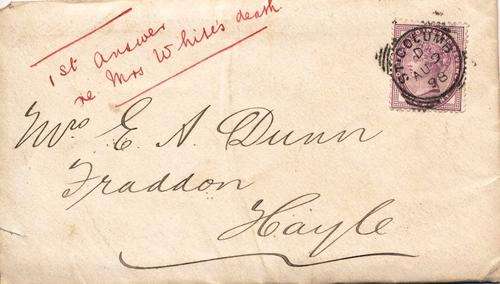 1st Answer
re Mrs White's death
ST. COLUMB
AU
98
Mrs E. A. Dunn
Fraddon
Hayle